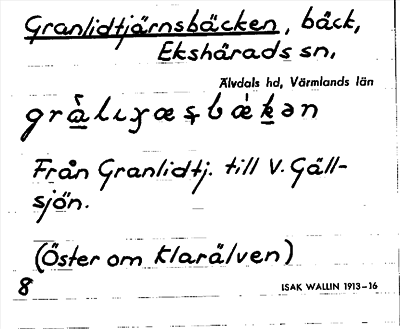 Granlidtjärnsbäcken, bäck,
Ekshärads sn,
Älvdals hd, Värmlands län
Från Granlidtj. till V. Gäll-
sjön.
(Öster om Klarälven)
8
ISAK WALLIN 1913–16